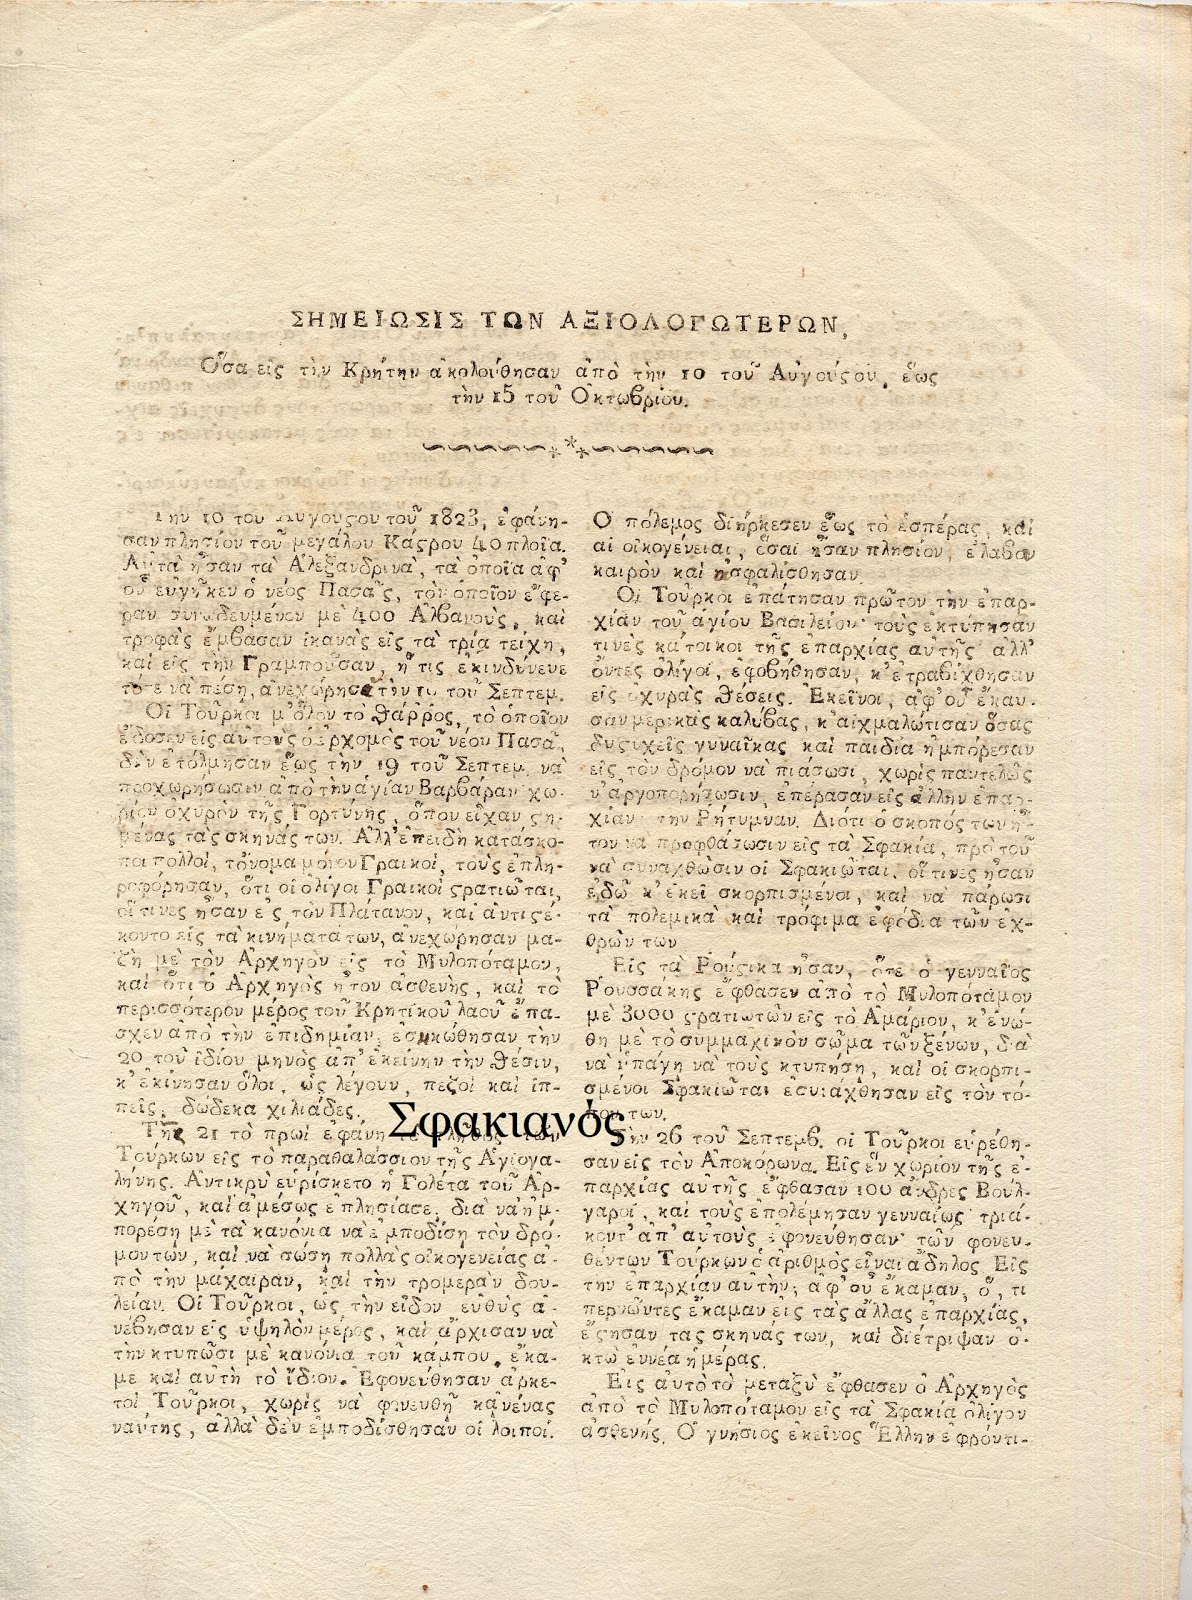 ΣΗΜΕΙΩΣΙΣ ΤΩΝ ΑΞΙΟΛΟΓΩΤΕΡΩΝ,
Ὅσα εἰς τὴν Κρήτην ἀκολούθησαν ἀπὸ τὴν 10 τοῦ Αὐγούϛου, ἕως
τὴν 15 τοῦ Ὀκτωβρίου.
Τὴν 10 τοῦ Αὐγούϛου τοῦ 1823, ἐφάνη-
σαν πλησίον τοῦ μεγάλου Κάϛρου 40 πλοῖα.
Αὐτὰ ἦσαν τὰ Ἀλεξανδρινὰ, τὰ ὁποῖα ἀφ᾽
οὗ εὐγῆκεν ὁ νέος Πασᾶς, τὸν ὁποῖον ἔφε-
ραν συνωδευμένον με 400 Ἀλβανοὺς, καὶ
τροφὰς ἔμβασαν ἱκανὰς εἰς τὰ τρία τείχη,
καὶ εἰς τὴν Γραμποῦσαν, ἥ τις ἐκινδύνευε
τότε νὰ πέσῃ, ἀνεχώρησε τὴν 10 τοῦ Σεπτεμ.
Οἱ Τοῦρκοι μ᾽ ὅλον τὸ θάῤῥος, τὸ ὁποῖον
ἔδοσεν εἰς αὐτοὺς ὁ ἐρχομὸς τοῦ νέου Πασᾶ,
δὲν ἐτόλμησαν ἕως τὴν 19 τοῦ Σεπτεμ. νὰ
προχωρήσωσιν ἀπὸ τὴν ἁγίαν Βαρβάραν χω-
ρίον ὀχυρὸν τῆς Γορτύνης, ὅπου εἶχαν ϛη-
μένας τὰς σκηνάς των. Ἀλλ᾽ ἐπειδὴ κατάσκο-
ποι πολλοὶ, τὄνομα μόνον Γραικοὶ, τοὺς ἐπλη-
ροφόρησαν, ὅτι οἱ ὀλίγοι Γραικοὶ ϛρατιῶται,
οἵ τινες ἦσαν εἰς τὸν Πλάτανον, καὶ ἀντιϛέ-
κοντο εἰς τὰ κινήματά των, ἀνεχώρησαν μα-
ζῆ μὲ τὸν Ἀρχηγὸν εἰς τὸ Μυλοπόταμον,
καὶ ὅτι ὁ Ἀρχηγὸς ἦτον ἀσθενὴς, καὶ τὸ
περισσότερον μέρος τοῦ Κρητικοῦ λαοῦ ἔπα-
σχεν ἀπὸ τὴν ἐπιδημίαν, ἐσηκώθησαν τὴν
20 τοῦ ἰδίου μηνὸς ἀπ᾽ ἐκείνην τὴν θέσιν,
κ᾽ ἐκίνησαν ὅλοι, ὡς λέγουν, πεζοὶ καὶ ἱπ-
πεῖς, δώδεκα χιλιάδες.
Τῇ 21 τὸ πρωὶ ἐφάνη τὸ πλῆθος τῶν
Τούρκων εἰς τὸ παραθαλάσσιον τῆς Ἁγιογα-
λήνης. Ἀντικρὺ εὑρίσκετο ἡ Γολέτα τοῦ Ἀρ-
χηγοῦ, καὶ ἀμέσως ἐπλησίασε, διὰ νὰ ἠμ-
πορέσῃ μὲ τὰ κανόνια νὰ ἐμποδίσῃ τὸν δρό-
μον των, καὶ νὰ σώσῃ πολλὰς οἰκογενείας ἀ-
πὸ τὴν μάχαιραν, καὶ τὴν τρομερὰν δου-
λείαν. Οἱ Τοῦρκοι, ὡς τὴν εἶδον εὐθὺς ἀ-
νέβησαν εἰς ὑψηλὸν μέρος, καὶ ἄρχισαν νὰ
τὴν κτυπῶσι μὲ κανόνια τοῦ κάμπου, ἔκα-
με καὶ αὐτὴ τὸ ἴδιον. Ἐφονεύθησαν ἀρκε-
τοὶ Τοῦρκοι, χωρὶς νὰ φονευθῇ κᾀνένας
ναύτης, ἀλλὰ δὲν ἐμποδίσθησαν οἱ λοιποί.
Ὁ πόλεμος διήρκεσεν ἕως τὸ ἑσπέρας, καὶ
αἱ οἰκογένειαι, ὅσαι ἦσαν πλησίον, ἔλαβον
καιρὸν καὶ ἠσφαλίσθησαν.
Οἱ Τοῦρκοι ἐπάτησαν πρῶτον τὴν ἐπαρ-
χίαν τοῦ ἁγίου Βασιλείου· τοὺς ἐκτύπησαν
τινὲς κάτοικοι τῆς ἐπαρχίας αὐτῆς· ἀλλ᾽
ὄντες ὀλίγοι, ἐφοβήθησαν, κ᾽ ἐτραβίχθησαν
εἰς ὀχυρὰς θέσεις. Ἐκεῖνοι, ἀφ᾽ οὗ ἔκαυ-
σαν μερικὰς καλύβας, κ᾽ αἰχμαλώτισαν ὅσας
δυϛυχεῖς γυναῖκας καὶ παιδία ἠμπόρεσαν
εἰς τὸν δρόμον νὰ πιάσωσι, χωρὶς παντελῶς
ν᾽ ἀργοπορήσωσιν, ἐπέρασαν εἰς ἄλλην ἐπαρ-
χίαν, τὴν Ρήτυμναν. Διότι ὁ σκοπός των ἦ-
τον νὰ προφθάσωσιν εἰς τὰ Σφακία, πρὸ τοῦ
νὰ συναχθῶσιν οἱ Σφακιῶται, οἵ τινες ἦσαν
ἐδῶ κ᾽ ἐκεῖ σκορπισμένοι, καὶ νὰ πάρωσι
τὰ πολεμικὰ καὶ τρόφιμα ἐφόδια τῶν ἐχ-
θρῶν των
Εἰς τὰ Ρούϛικα ἦσαν, ὅτε ὁ γενναῖος
Ῥουσσάκης ἔφθασεν ἀπὸ τὸ Μυλοπόταμον
μὲ 3000 ϛρατιωτῶν εἰς τὸ Ἀμάριον, κ᾽ ἑνώ-
θη μὲ τὸ συμμαχικὸν σῶμα τῶν ξένων, διὰ
νὰ ὑπάγῃ νὰ τοὺς κτυπήσῃ, καὶ οἱ σκορπι-
σμένοι Σφακιῶται ἐσυνάχθησαν εἰς τὸν τό-
πον των.
Τὴν 26 τοῦ Σεπτεμβ. οἱ Τοῦρκοι εὑρέθη-
σαν εἰς τὸν Ἀποκόρωνα. Εἰς ἓν χωρίον τῆς ἐ-
παρχίας αὐτῆς ἔφθασαν 100 ἄνδρες Βούλ-
γαροι, καὶ τοὺς ἐπολέμησαν γενναίως· τριά-
κοντ᾽ ἀπ᾽ αὐτοὺς ἐφονεύθησαν· τῶν φονευ-
θέντων Τούρκων ὁ ἀριθμὸς εἶναι ἄδηλος. Εἰς
τὴν ἐπαρχίαν αὐτὴν, ἀφ᾽ οὗ ἔκαμαν, ὅ, τι
περνῶντες ἔκαμαν εἰς τὰς ἄλλας ἐπαρχίας,
ἔϛησαν τὰς σκηνάς των, καὶ διέτριψαν ὀ-
κτὼ ἐννέα ἡμέρας.
Εἰς αὐτὸ τὸ μεταξὺ ἔφθασεν ὁ Ἀρχηγὸς
ἀπὸ τὸ Μυλοπόταμον εἰς τὰ Σφακία ὀλίγον
ἀσθενής. Ὁ γνήσιος ἐκεῖνος Ἕλλην ἐφρόντι-
Σφακιανός